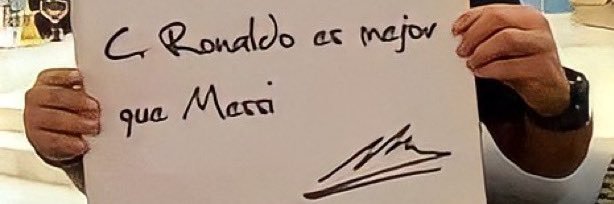 C. Ronaldo es mejor
que Messi